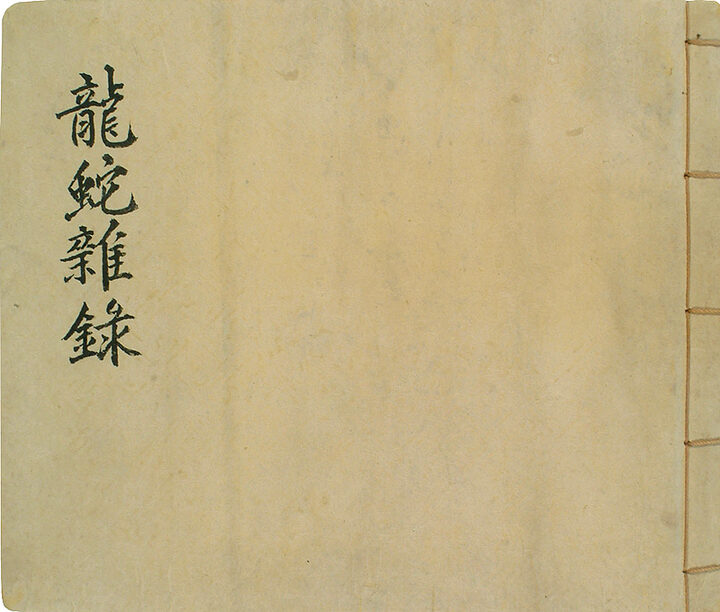 龍蛇雜錄